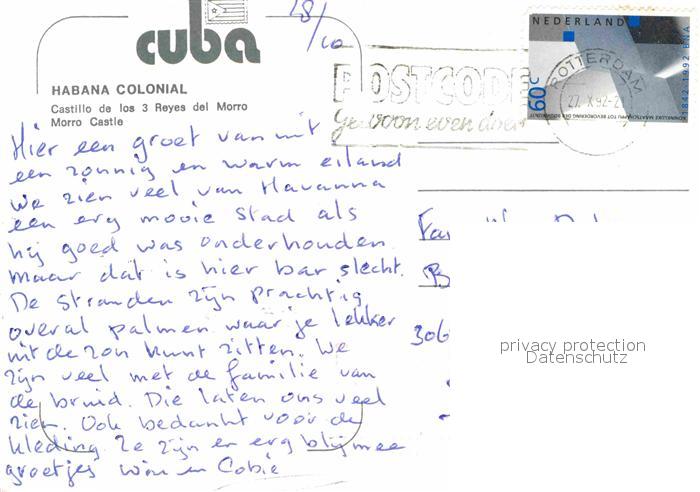 cuba
18/10
HABANA COLONIAL
Castillo de los 3 Reyes del Morro
Morro Castle
NEDERLAND
60c
1842-1992 BNA
KONINKLIJKE MAATSCHAPPIJ TOT BEVORDERING DER BOUWKUNST
ROTTERDAM
27.X.92-2
POSTCODE
gewoon even doen
Hier een groet vanuit
een zonnig en warm eiland
We zien veel van Havanna
een erg mooie stad als
hij goed was onderhouden
maar dat is hier bar slecht.
De stranden zijn prachtig
overal palmen waar je lekker
uit de zon kunt zitten. We
zijn veel met de familie van
de bruid. Die laten ons veel
zien. Ook bedankt voor de
kleding. Ze zijn er erg blij mee
groetjes Wim en Cobie
Fa
B
306
privacy protection
Datenschutz